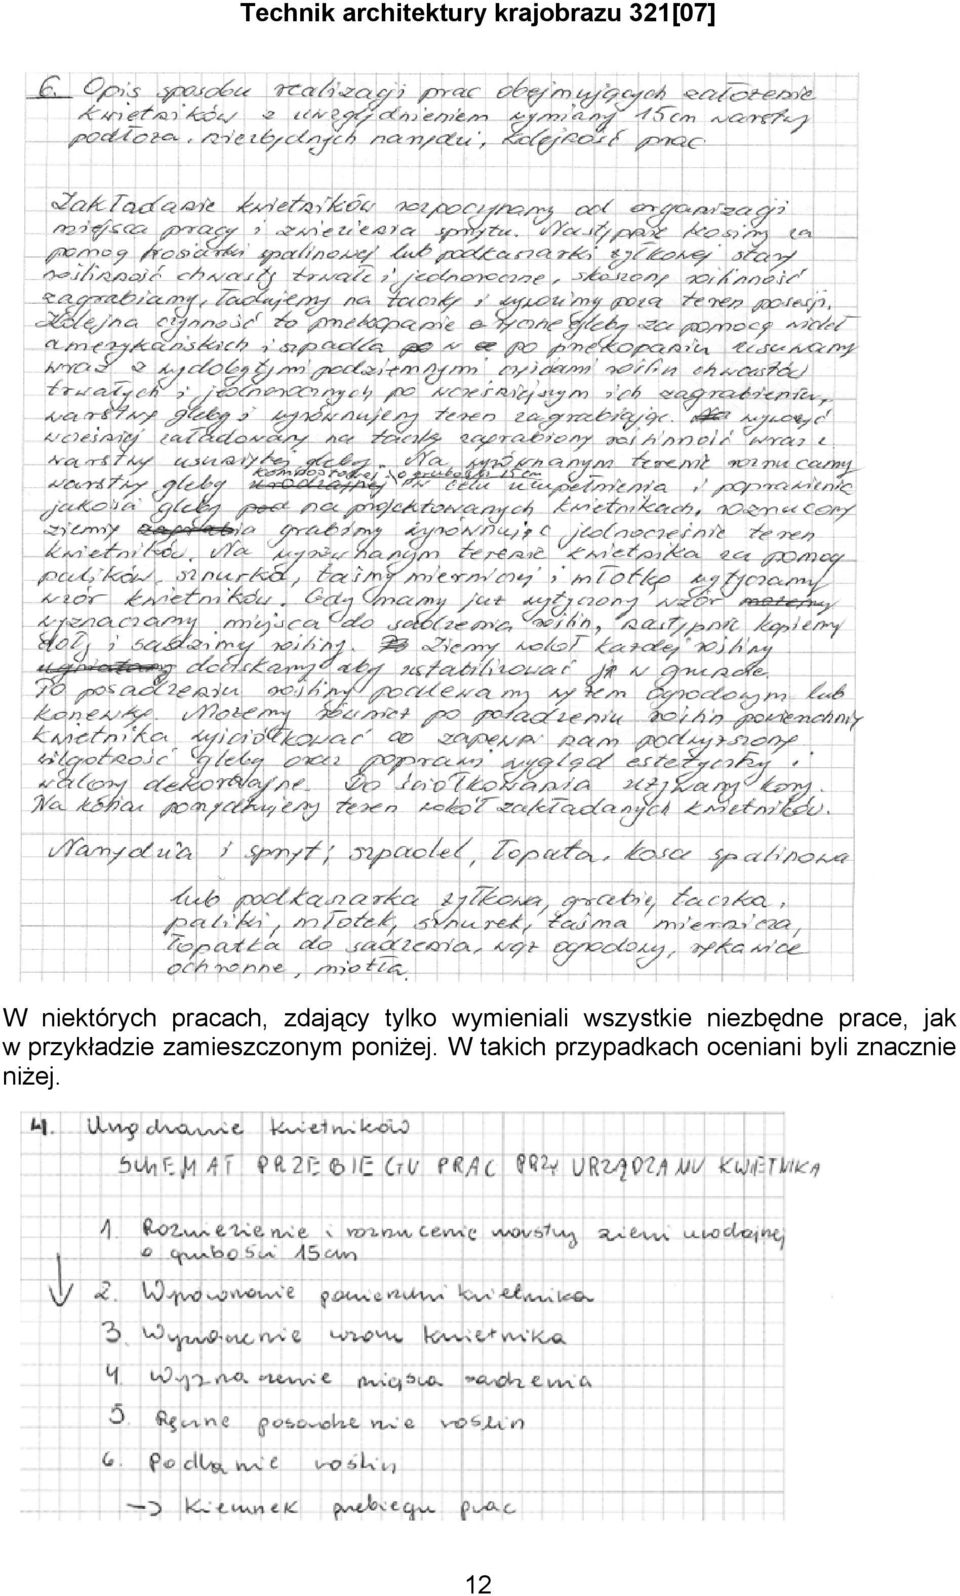 Technik architektury krajobrazu 321[07]
6. Opis sposobu realizacji prac obejmujących założenie
kwietników z uwzględnieniem wymiany 15cm warstwy
podłoża, niezbędnych narzędzi, kolejność prac.
Zakładanie kwietników rozpoczynamy od organizacji
miejsca pracy i zwiezienia sprzętu. Następnie kosimy za
pomocą kosiarki spalinowej lub podkaszarki żyłkowej starą
roślinność chwasty trwałe i jednoroczne, skoszoną roślinność
zagrabiamy, ładujemy na taczkę i wywozimy poza teren posesji.
Kolejna czynność to przekopanie gleby za pomocą wideł
amerykańskich i szpadla po przekopaniu usuwamy
wraz z wydobytymi podziemnymi częściami roślin chwastów
trwałych i jednorocznych po wcześniejszym ich zagrabieniu,
warstwę gleby i wyrównujemy teren zagrabiając. wywozić
wcześniej załadowaną na taczkę zagrabioną roślinność wraz z
warstwą usuniętej gleby. Na wyrównanym terenie rozrzucamy
kompostowej o grubości 15 cm
warstwę gleby urodzajnej w celu uzupełnienia i poprawienia
jakości gleby pod na projektowanych kwietnikach, rozrzucony
ziemię grabimy wyrównując jednocześnie teren
kwietników. Na wyrównanym terenie kwietnika za pomocą
palików, sznurka, taśmy mierniczej i młotka wytyczamy
wzór kwietników. Gdy mamy już wytyczony wzór możemy
wyznaczamy miejsca do sadzenia roślin, następnie kopiemy
doły i sadzimy rośliny. Ziemię wokół każdej rośliny
ugniatamy dociskamy aby ustabilizować ją w gruncie.
Po posadzeniu rośliny podlewamy wężem ogrodowym lub
konewką. Możemy również po posadzeniu roślin powierzchnię
kwietnika wyściółkować co zapewni nam podwyższoną
wilgotność gleby oraz poprawi wygląd estetyczny i
walory dekoracyjne. Do ściółkowania używamy kory.
Na koniec porządkujemy teren wokół zakładanych kwietników.
Narzędzia i sprzęt; szpadel, łopata, kosa spalinowa
lub podkaszarka żyłkowa, grabie, taczka,
paliki, młotek, sznurek, taśma miernicza,
łopatka do sadzenia, wąż ogrodowy, rękawice
ochronne, miotła.
W niektórych pracach, zdający tylko wymieniali wszystkie niezbędne prace, jak
w przykładzie zamieszczonym poniżej. W takich przypadkach oceniani byli znacznie
niżej.
4. Urządzanie kwietników
SCHEMAT PRZEBIEGU PRAC PRZY URZĄDZANU KWIETNIKA
1. Rozwiezienie i rozrzucenie warstwy ziemi urodzajnej
o grubości 15cm
2. Wyrównanie powierzchni kwietnika
3. Wyznaczenie wzoru kwietnika
4. Wyznaczenie miejsca sadzenia
5. Ręczne posadzenie roślin
6. Podlanie roślin
→ Kierunek przebiegu prac
12